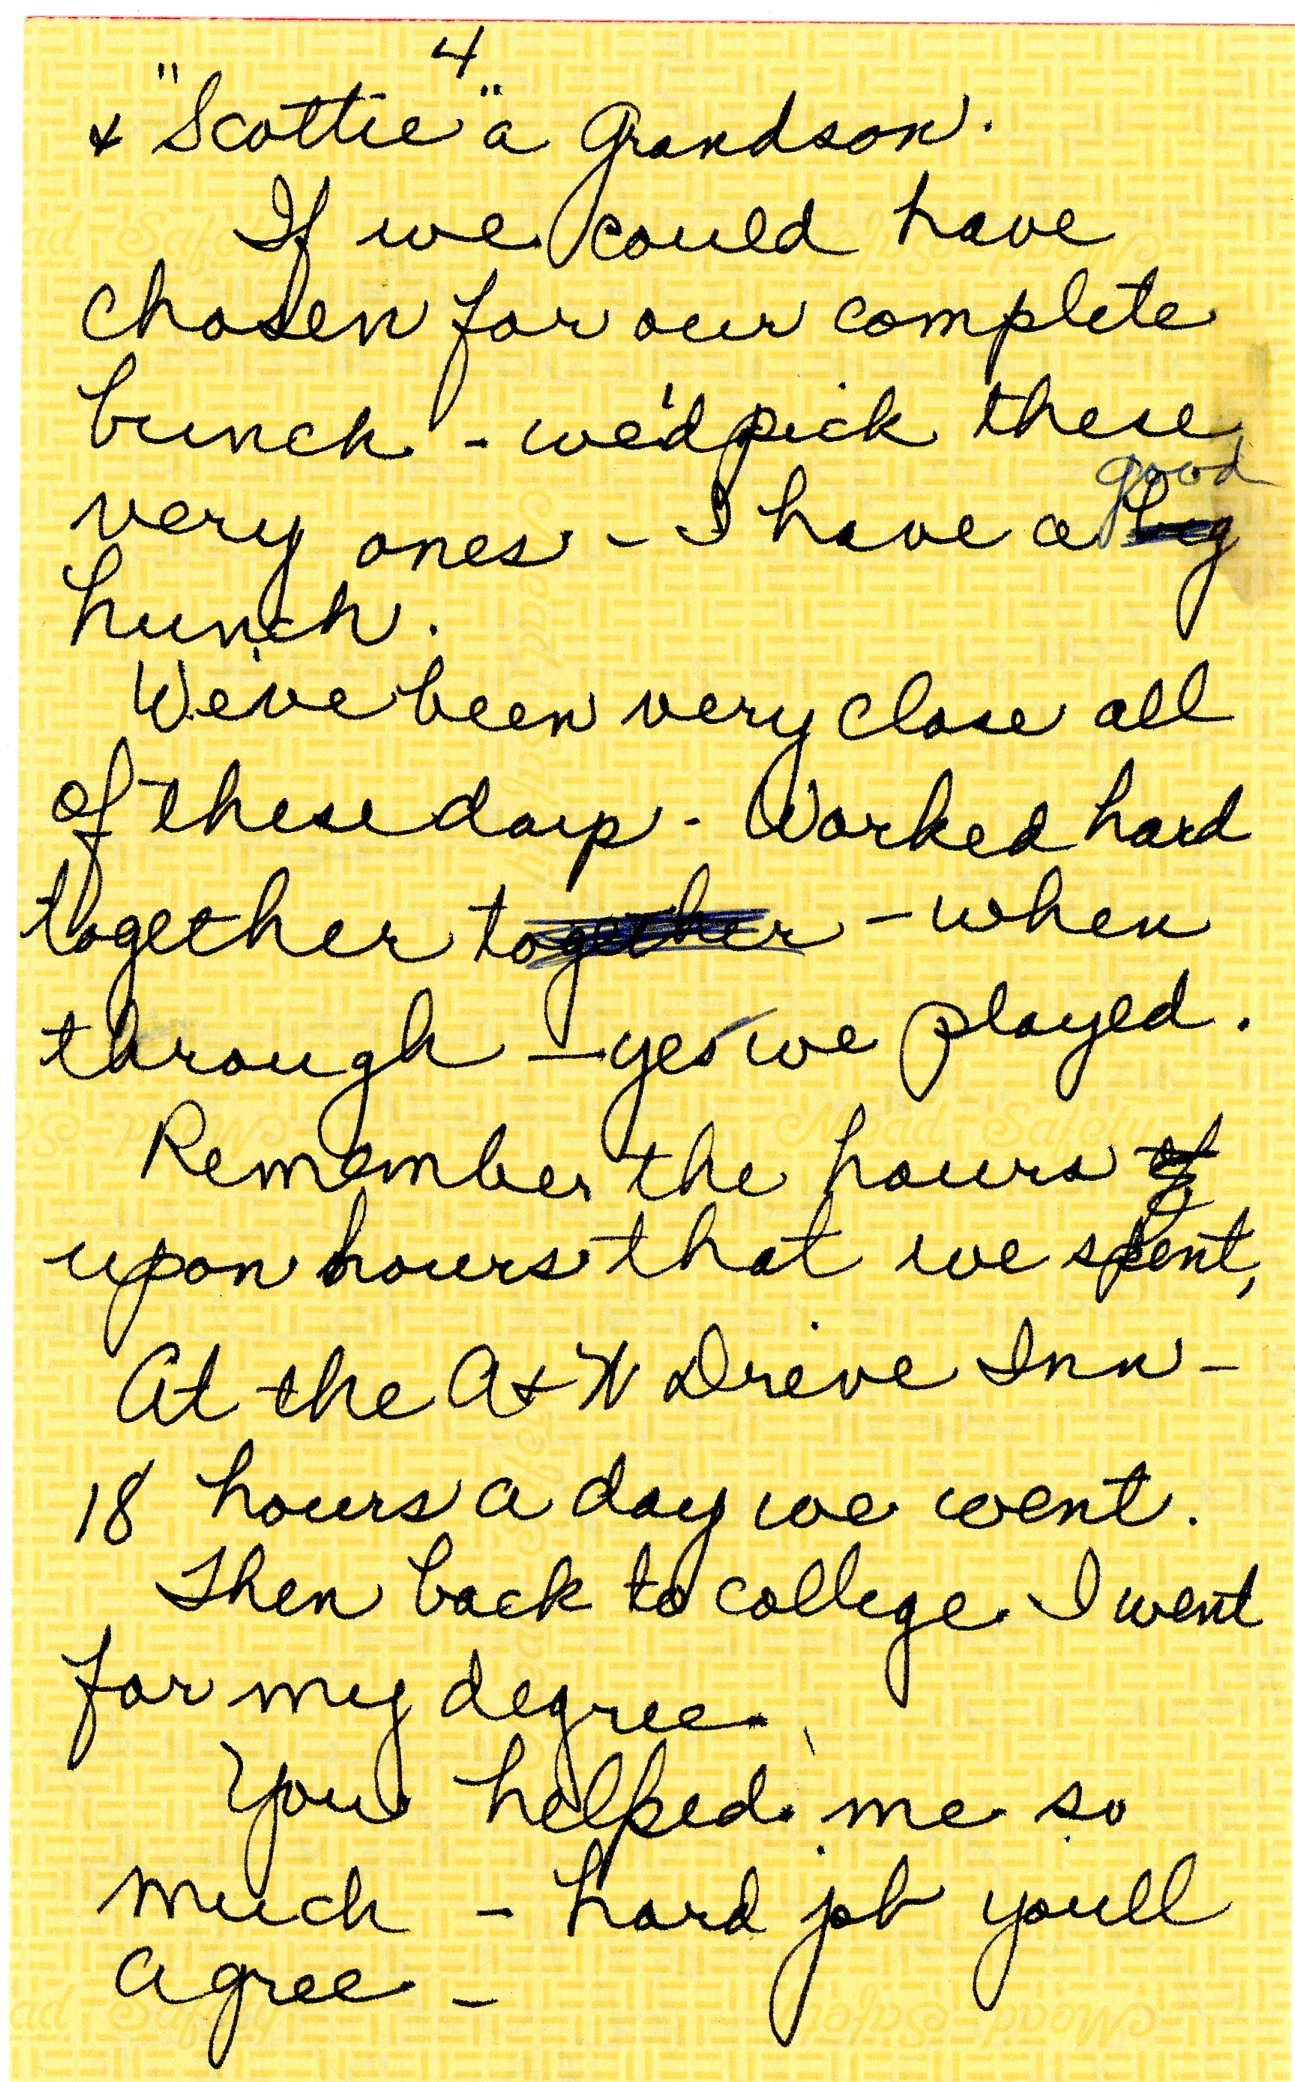 4
& "Scottie" a Grandson.
If we could have
chosen for our complete
bunch - we'd pick these
good
very ones - I have a big
hunch.
We've been very close all
of these days - Worked hard
together together - when
through - yes we played.
Remember the hours of
upon hours that we spent,
At the A & W Drive Inn -
18 hours a day we went.
Then back to college I went
for my degree.
You helped me so
much - hard job youll
agree -